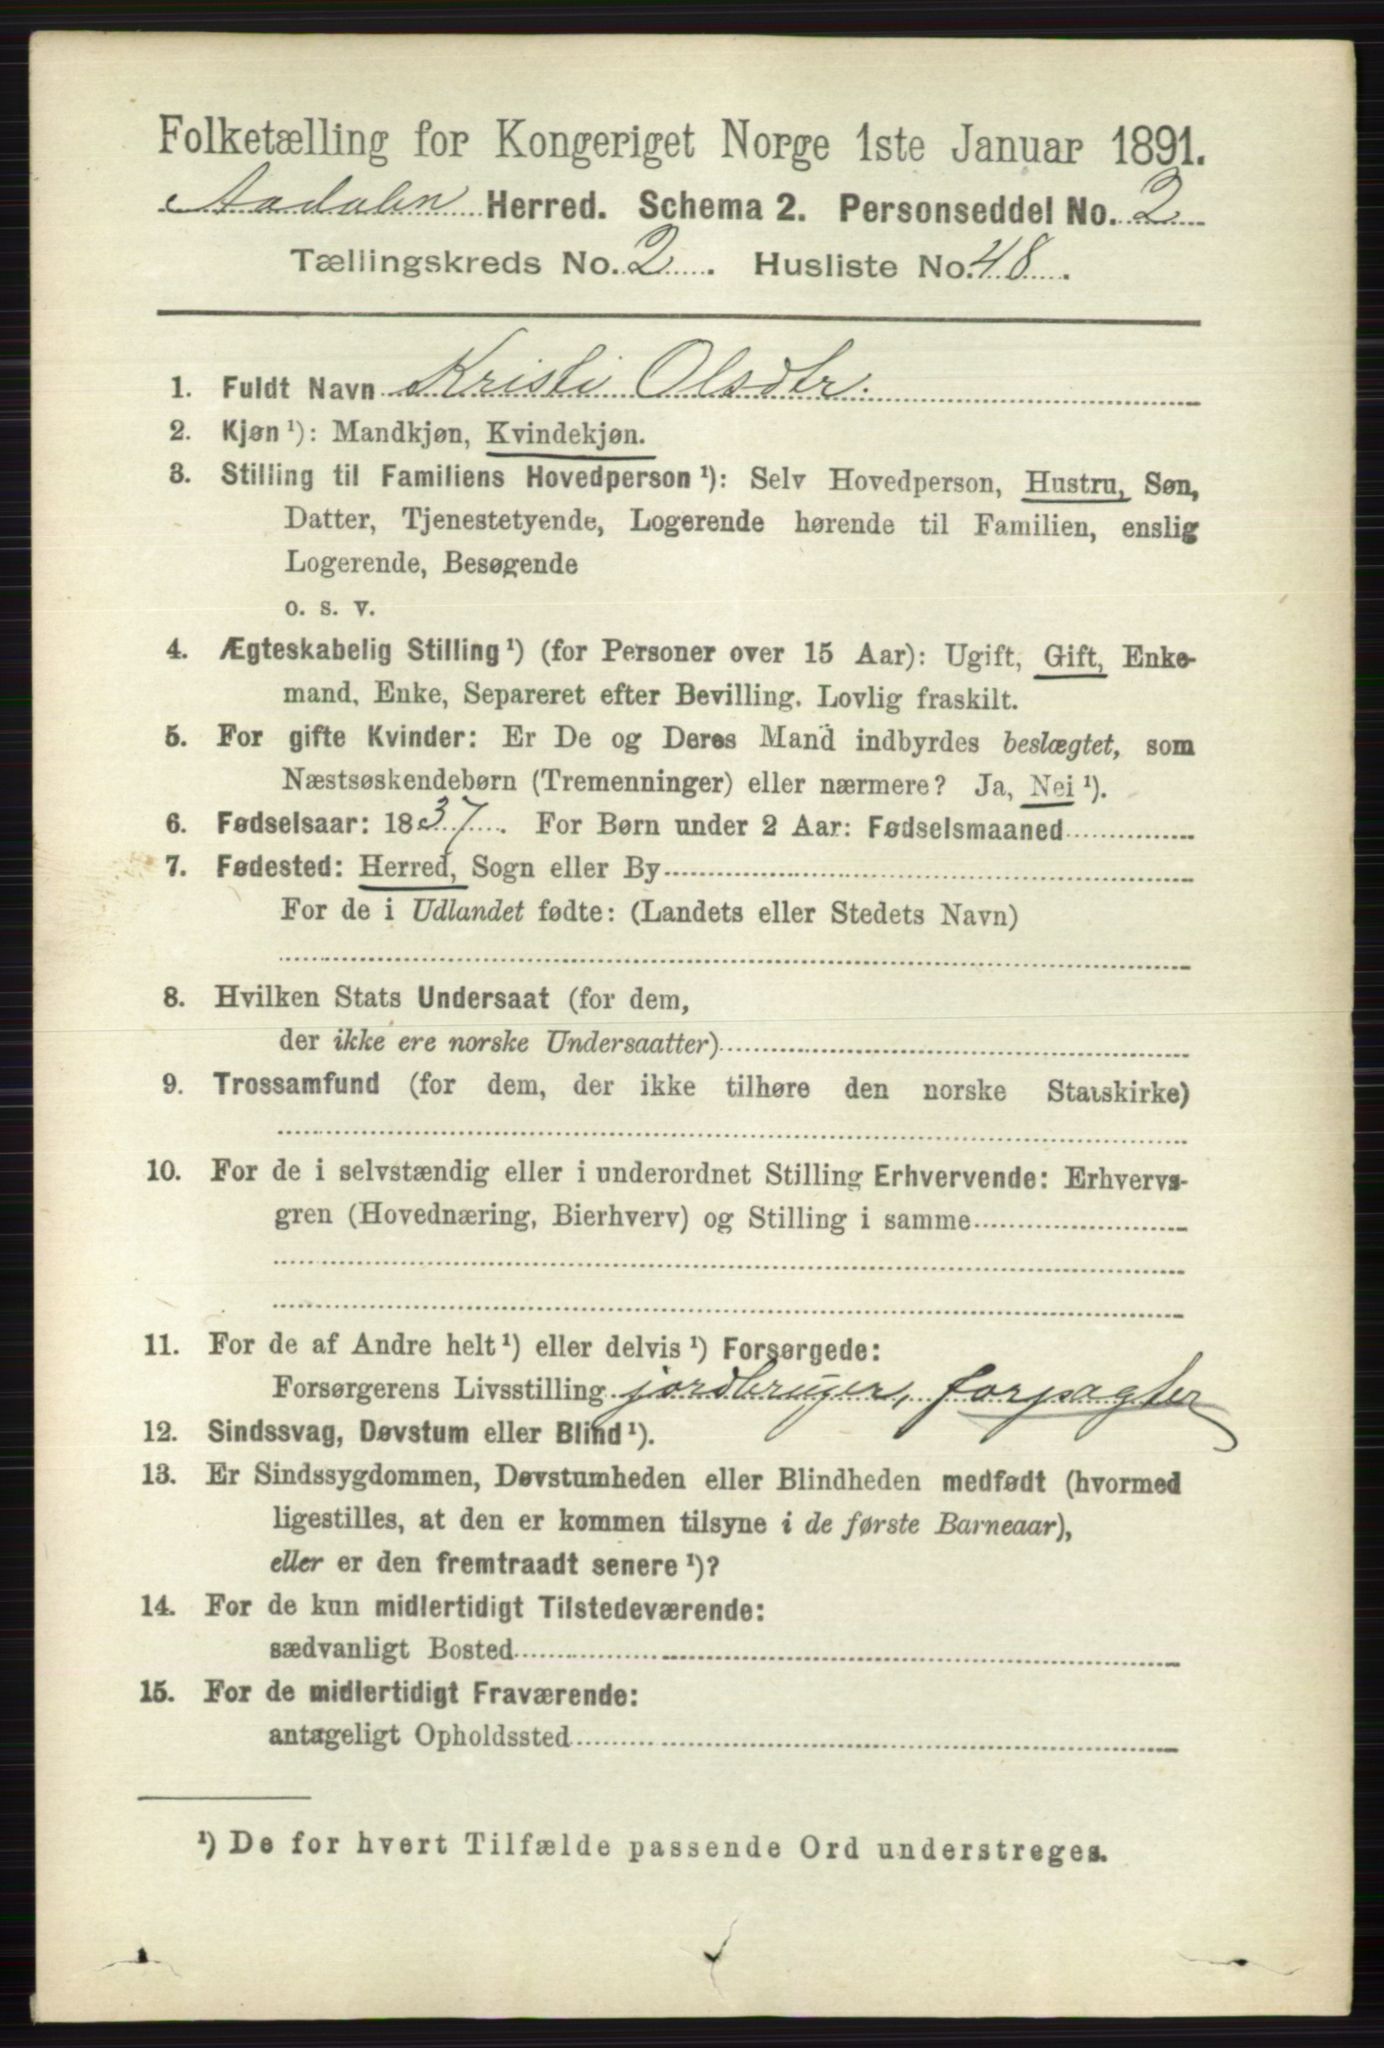 Folketælling for Kongeriget Norge 1ste Januar 1891.
Aadalen Herred. Schema 2. Personseddel No. 2
Tællingskreds No. 2. Husliste No. 48.
1. Fuldt Navn Kristi Olsdtr.
2. Kjøn ¹): Mandkjøn, Kvindekjøn.
3. Stilling til Familiens Hovedperson ¹): Selv Hovedperson, Hustru, Søn,
Datter, Tjenestetyende, Logerende hørende til Familien, enslig
Logerende, Besøgende
o. s. v.
4. Ægteskabelig Stilling ¹) (for Personer over 15 Aar): Ugift, Gift, Enke-
mand, Enke, Separeret efter Bevilling. Lovlig fraskilt.
5. For gifte Kvinder: Er De og Deres Mand indbyrdes beslægtet, som
Næstsøskendebørn (Tremenninger) eller nærmere? Ja, Nei ¹).
6. Fødselsaar: 1837. For Børn under 2 Aar: Fødselsmaaned
7. Fødested: Herred, Sogn eller By
For de i Udlandet fødte: (Landets eller Stedets Navn)
8. Hvilken Stats Undersaat (for dem,
der ikke ere norske Undersaatter)
9. Trossamfund (for dem, der ikke tilhøre den norske Statskirke)
10. For de i selvstændig eller i underordnet Stilling Erhvervende: Erhvervs-
gren (Hovednæring, Bierhverv) og Stilling i samme
11. For de af Andre helt ¹) eller delvis ¹) Forsørgede:
Forsørgerens Livsstilling jordbruger, forpagter
12. Sindssvag, Døvstum eller Blind ¹).
13. Er Sindssygdommen, Døvstumheden eller Blindheden medfødt (hvormed
ligestilles, at den er kommen tilsyne i de første Barneaar),
eller er den fremtraadt senere ¹)?
14. For de kun midlertidigt Tilstedeværende:
sædvanligt Bosted
15. For de midlertidigt Fraværende:
antageligt Opholdssted
¹) De for hvert Tilfælde passende Ord understreges.